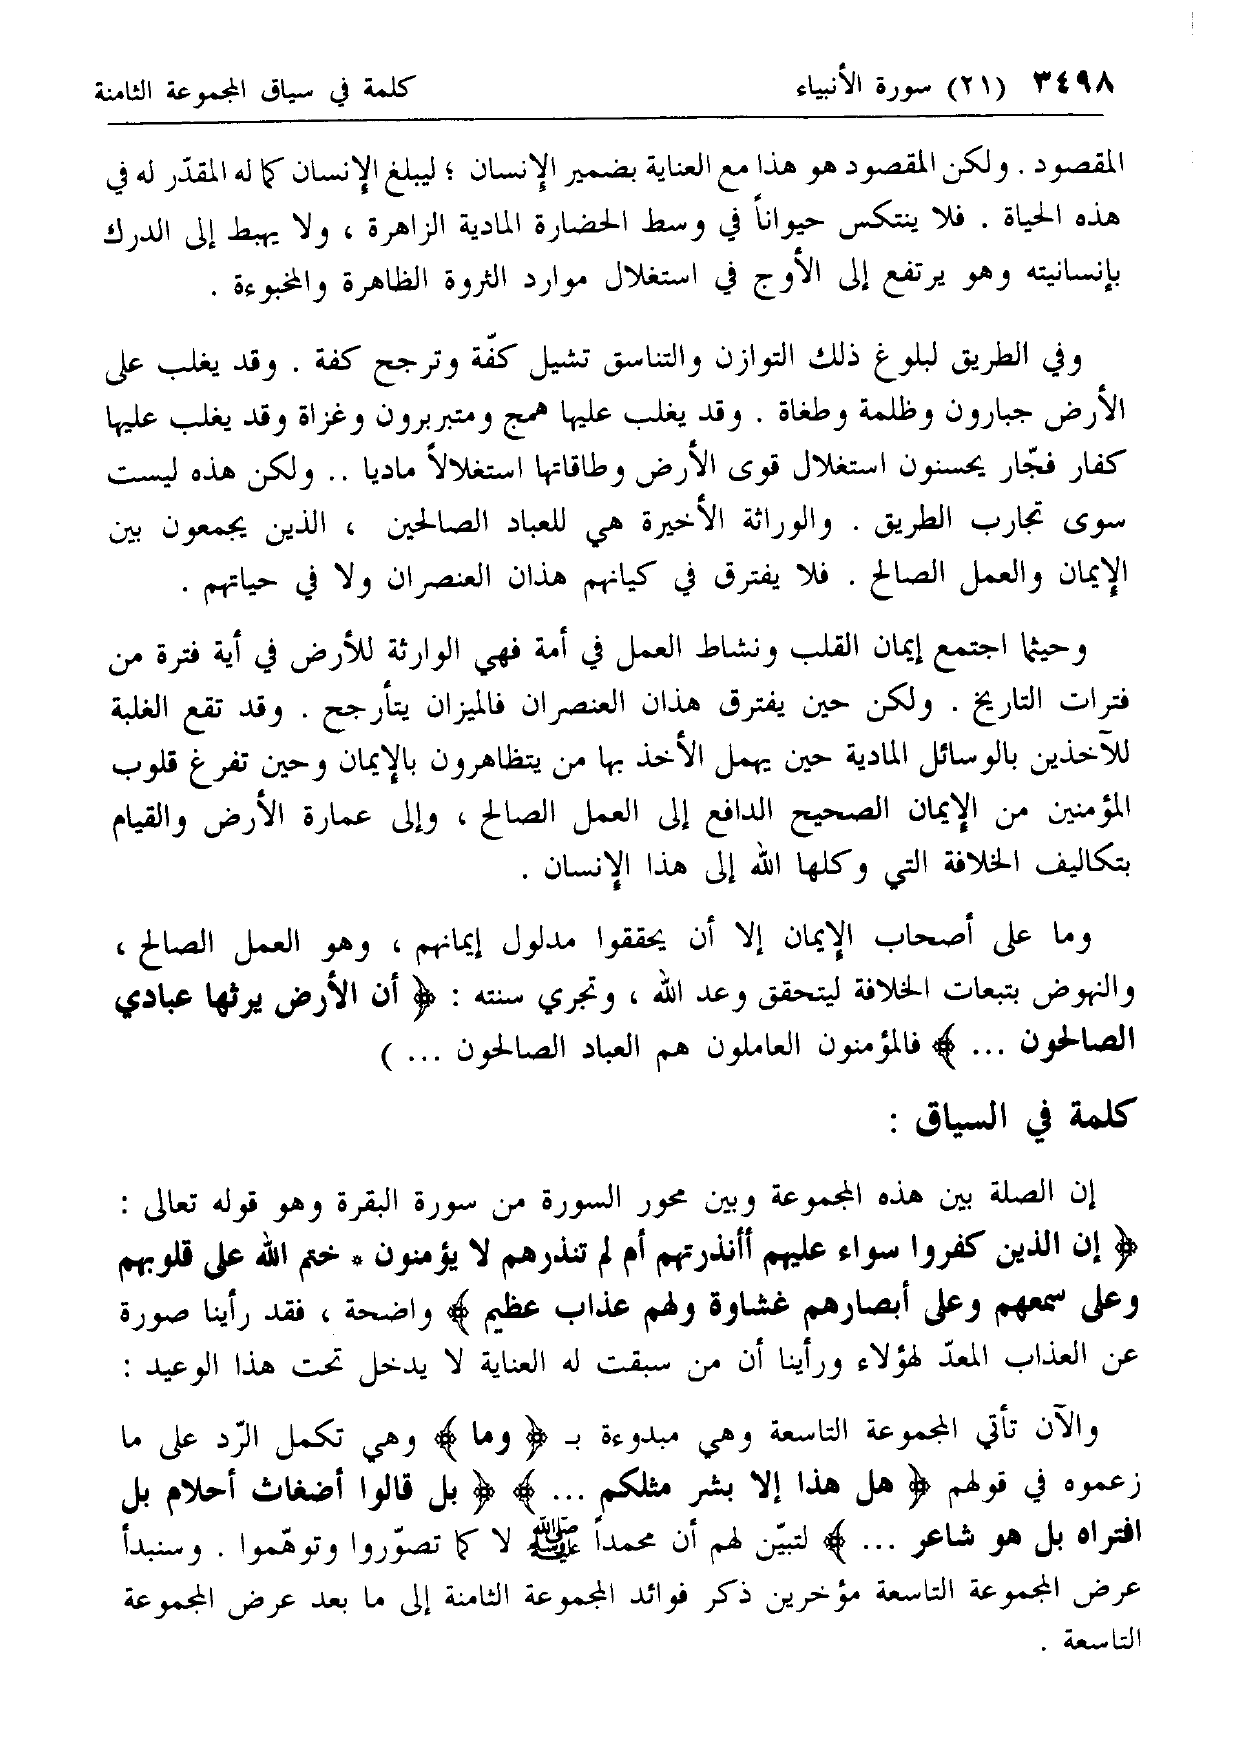 ٣٤٩٨ (٢١) سورة الأنبياء كلمة في سياق المجموعة الثامنة
المقصود . ولكن المقصود هو هذا مع العناية بضمير الإنسان ؛ ليبلغ الإنسان كماله المقدّر له في
هذه الحياة . فلا ينتكس حيواناً في وسط الحضارة المادية الزاهرة ، ولا يهبط إلى الدرك
بإنسانيته وهو يرتفع إلى الأوج في استغلال موارد الثروة الظاهرة والمخبوءة .
وفي الطريق لبلوغ ذلك التوازن والتناسق تشيل كفّة وترجح كفة . وقد يغلب على
الأرض جبارون وظلمة وطغاة . وقد يغلب عليها همج ومتبربرون وغزاة وقد يغلب عليها
كفار فجّار يحسنون استغلال قوى الأرض وطاقاتها استغلالاً ماديا .. ولكن هذه ليست
سوى تجارب الطريق . والوراثة الأخيرة هي للعباد الصالحين ، الذين يجمعون بين
الإيمان والعمل الصالح . فلا يفترق في كيانهم هذان العنصران ولا في حياتهم .
وحيثما اجتمع إيمان القلب ونشاط العمل في أمة فهي الوارثة للأرض في أية فترة من
فترات التاريخ . ولكن حين يفترق هذان العنصران فالميزان يتأرجح . وقد تقع الغلبة
للآخذين بالوسائل المادية حين يهمل الأخذ بها من يتظاهرون بالإيمان وحين تفرغ قلوب
المؤمنين من الإيمان الصحيح الدافع إلى العمل الصالح ، وإلى عمارة الأرض والقيام
بتكاليف الخلافة التي وكلها الله إلى هذا الإنسان .
وما على أصحاب الإيمان إلا أن يحققوا مدلول إيمانهم ، وهو العمل الصالح ،
والنهوض بتبعات الخلافة ليتحقق وعد الله ، وتجري سنته : ﴿ أن الأرض يرثها عبادي
الصالحون ... ﴾ فالمؤمنون العاملون هم العباد الصالحون ... )
كلمة في السياق :
إن الصلة بين هذه المجموعة وبين محور السورة من سورة البقرة وهو قوله تعالى :
﴿ إن الذين كفروا سواء عليهم أأنذرتهم أم لم تنذرهم لا يؤمنون * ختم الله على قلوبهم
وعلى سمعهم وعلى أبصارهم غشاوة ولهم عذاب عظيم ﴾ واضحة ، فقد رأينا صورة
عن العذاب المعدّ لهؤلاء ورأينا أن من سبقت له العناية لا يدخل تحت هذا الوعيد :
والآن تأتي المجموعة التاسعة وهي مبدوءة بـ ﴿ وما ﴾ وهي تكمل الرّد على ما
زعموه في قولهم ﴿ هل هذا إلا بشر مثلكم ... ﴾ ﴿ بل قالوا أضغاث أحلام بل
افتراه بل هو شاعر ... ﴾ لتبيّن لهم أن محمداً ﷺ لا كما تصوّروا وتوهّموا . وسنبدأ
عرض المجموعة التاسعة مؤخرين ذكر فوائد المجموعة الثامنة إلى ما بعد عرض المجموعة
التاسعة .